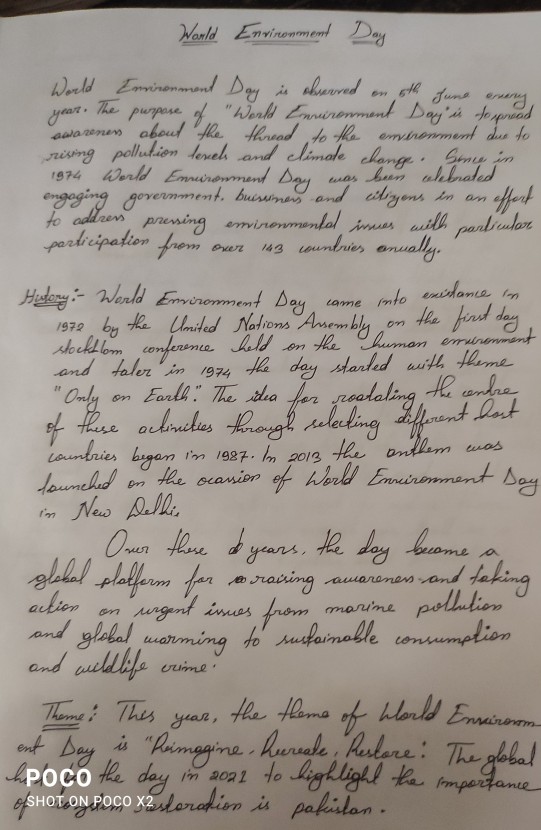 World Environment Day
World Environment Day is observed on 5th June every
year. The purpose of "World Environment Day" is to spread
awareness about the thread to the environment due to
rising pollution levels and climate change. Since in
1974 World Environment Day was been celebrated
engaging government. buissness and citizens in an effort
to address pressing environmental issues with particular
participation from over 143 countries anually.
History:- World Environment Day came into existance in
1972 by the United Nations Assembly on the first day
stockhlom conference held on the human environment
and later in 1974 the day started with theme
"Only on Earth". The idea for roatating the centre
of these activities through selecting different host
countries began in 1987. In 2013 the anthem was
launched on the ocassion of World Environment Day
in New Delhi.
Over these years, the day became a
global platform for raising awareness and taking
action on urgent issues from marine pollution
and global warming to sustainable consumption
and wildlife crime.
Theme: This year, the theme of World Environm
ent Day is "Reimagine. Recreate. Restore: The global
the day in 2021 to highlight the importance
of restoration is pakistan.
POCO
SHOT ON POCO X2